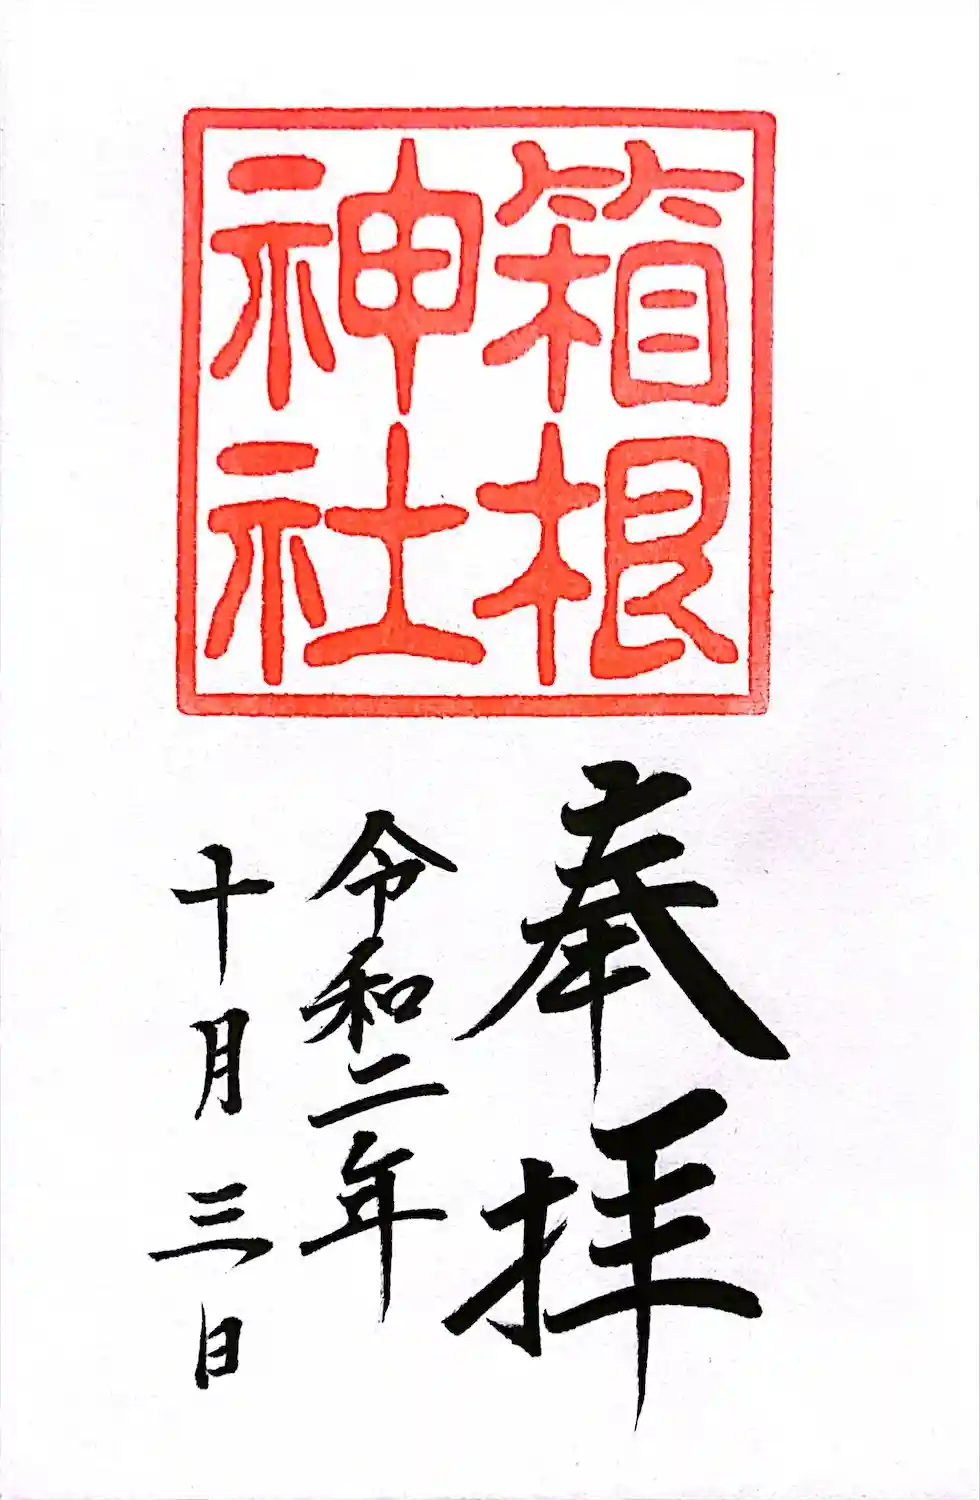 箱根
神社
奉拝
令和二年
十月三日